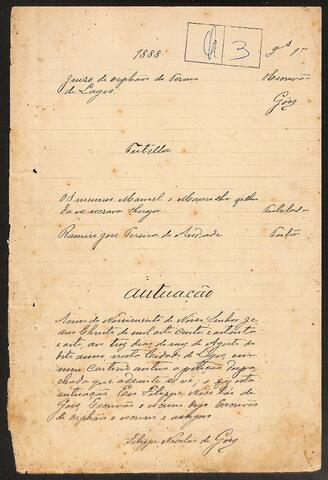 1888
3
fls 1
Juizo de orphãos do Termo
de Lages
Escrivão
Góss
Tutella
Os menores Manoel e
da ex escrava
Tutelados
Ramiro José Pereira de Andrade
Tutor
Autuação
Anno do Nascimento de Nosso Senhor Je-
sus Christo de mil oito centos e oitenta
e oito, aos tres dias do mez de Agosto do
dito anno nesta Cidade de Lages em
meu Cartorio autuo a petição despa-
chada que adiante se vê; e fiz esta
autuação. Eu Filippe Nicoláo de
Góss Escrivão
de orphãos o escrevi e assigno
Filippe Nicoláo de Góss